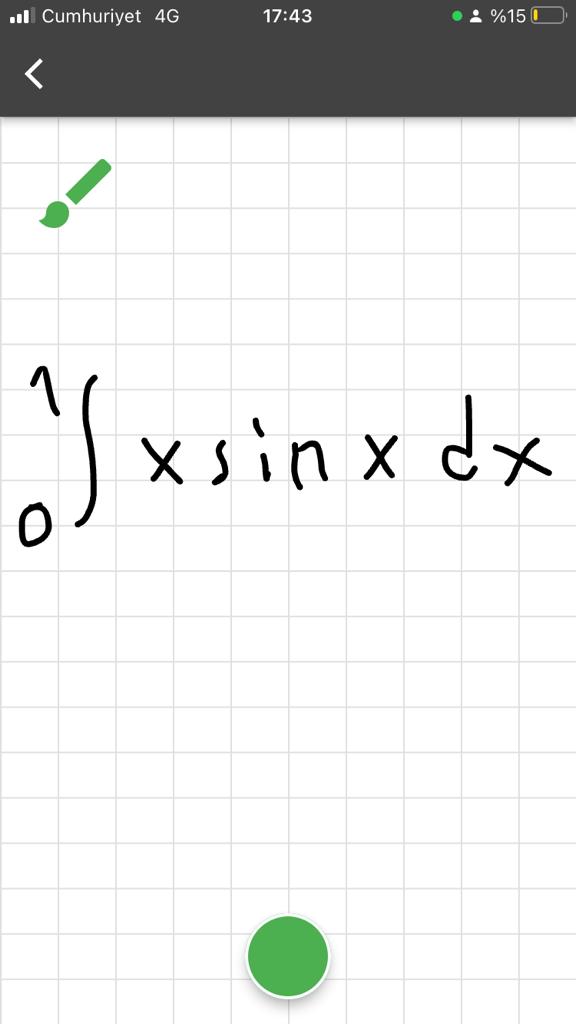 Cumhuriyet 4G 17:43 %15
1
∫ x sin x dx
0